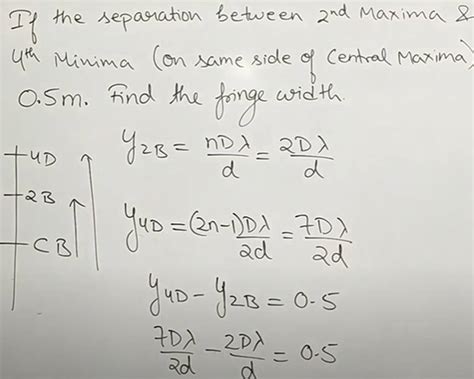 If the separation between 2nd Maxima &
4th Minima (on same side of Central Maxima)
0.5m. Find the fringe width.
y2B = nDλ/d = 2Dλ/d
4D
2B
CB
y4D = (2n-1)Dλ/2d = 7Dλ/2d
y4D - y2B = 0.5
7Dλ/2d - 2Dλ/d = 0.5